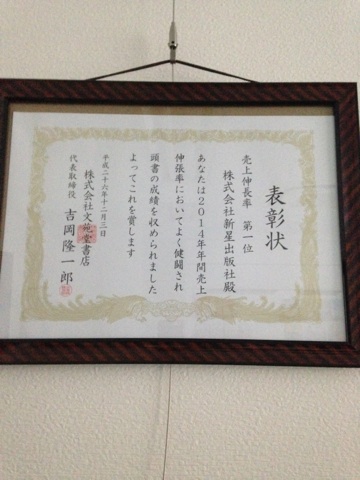 表彰状
売上伸長率 第一位
株式会社新星出版社殿
あなたは2014年年間売上
伸張率においてよく健闘され
頭書の成績を収められました
よってこれを賞します
平成二十六年十二月三日
株式会社文苑堂書店
代表取締役 吉岡隆一郎